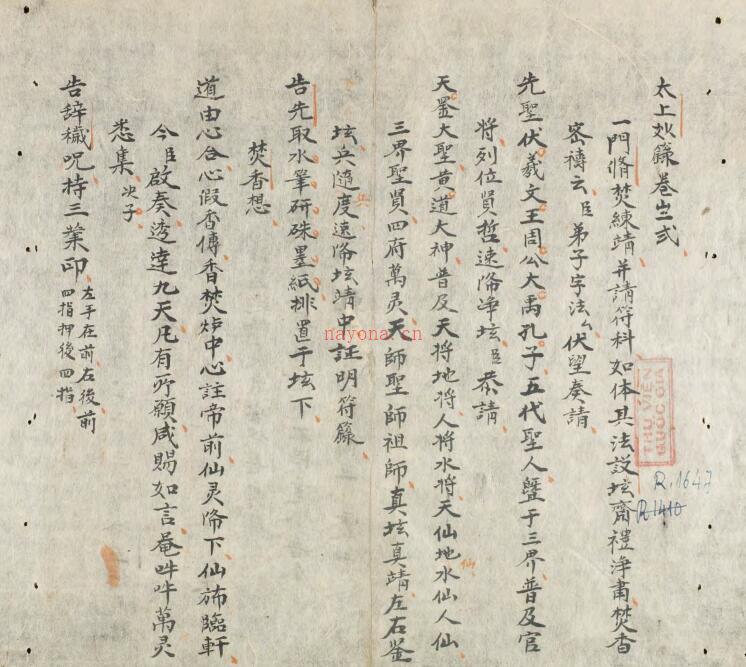 太上妙籙卷之弍
一門脩焚練靖并請符科如体具法設坛齋禮浄肅焚香
密禱云臣弟子字法厶伏望奏請
先聖伏羲文王周公大禹孔子五代聖人暨于三界普及官
将列位賢哲速降净坛臣恭請
天鉴大聖黄道大神普及天将地将人将水将天仙地水仙人仙
仙
三界聖賢四府萬灵天師聖師祖師真坛真靖左右鉴
坛兵隨度速降坛靖中証明符籙
兵
告先取水筆研硃墨紙排置于坛下
焚香想
道由心合心假香傳香焚炉中心註帝前仙灵降下仙斾臨軒
今臣啟奏逵達九天凡有所願咸賜如言菴吽吽萬灵
悉集次子
告辞穢呪持三業印左手在前右後前
四指押後四指
THƯ VIỆN
QUỐC GIA
R.1647
R.1410
nayona.cn